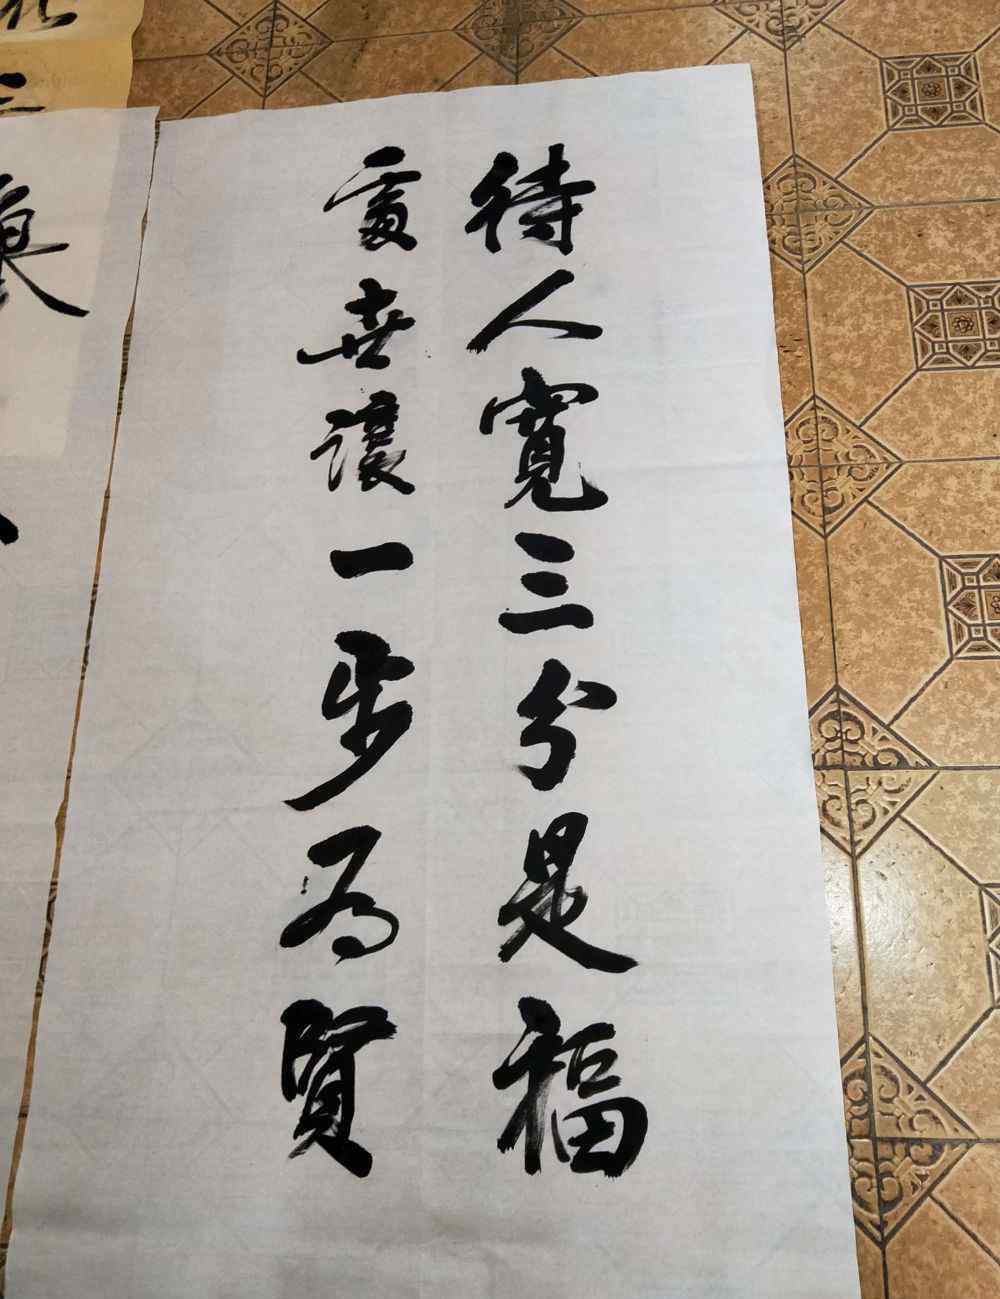 待人寬三分是福
處世讓一步為賢